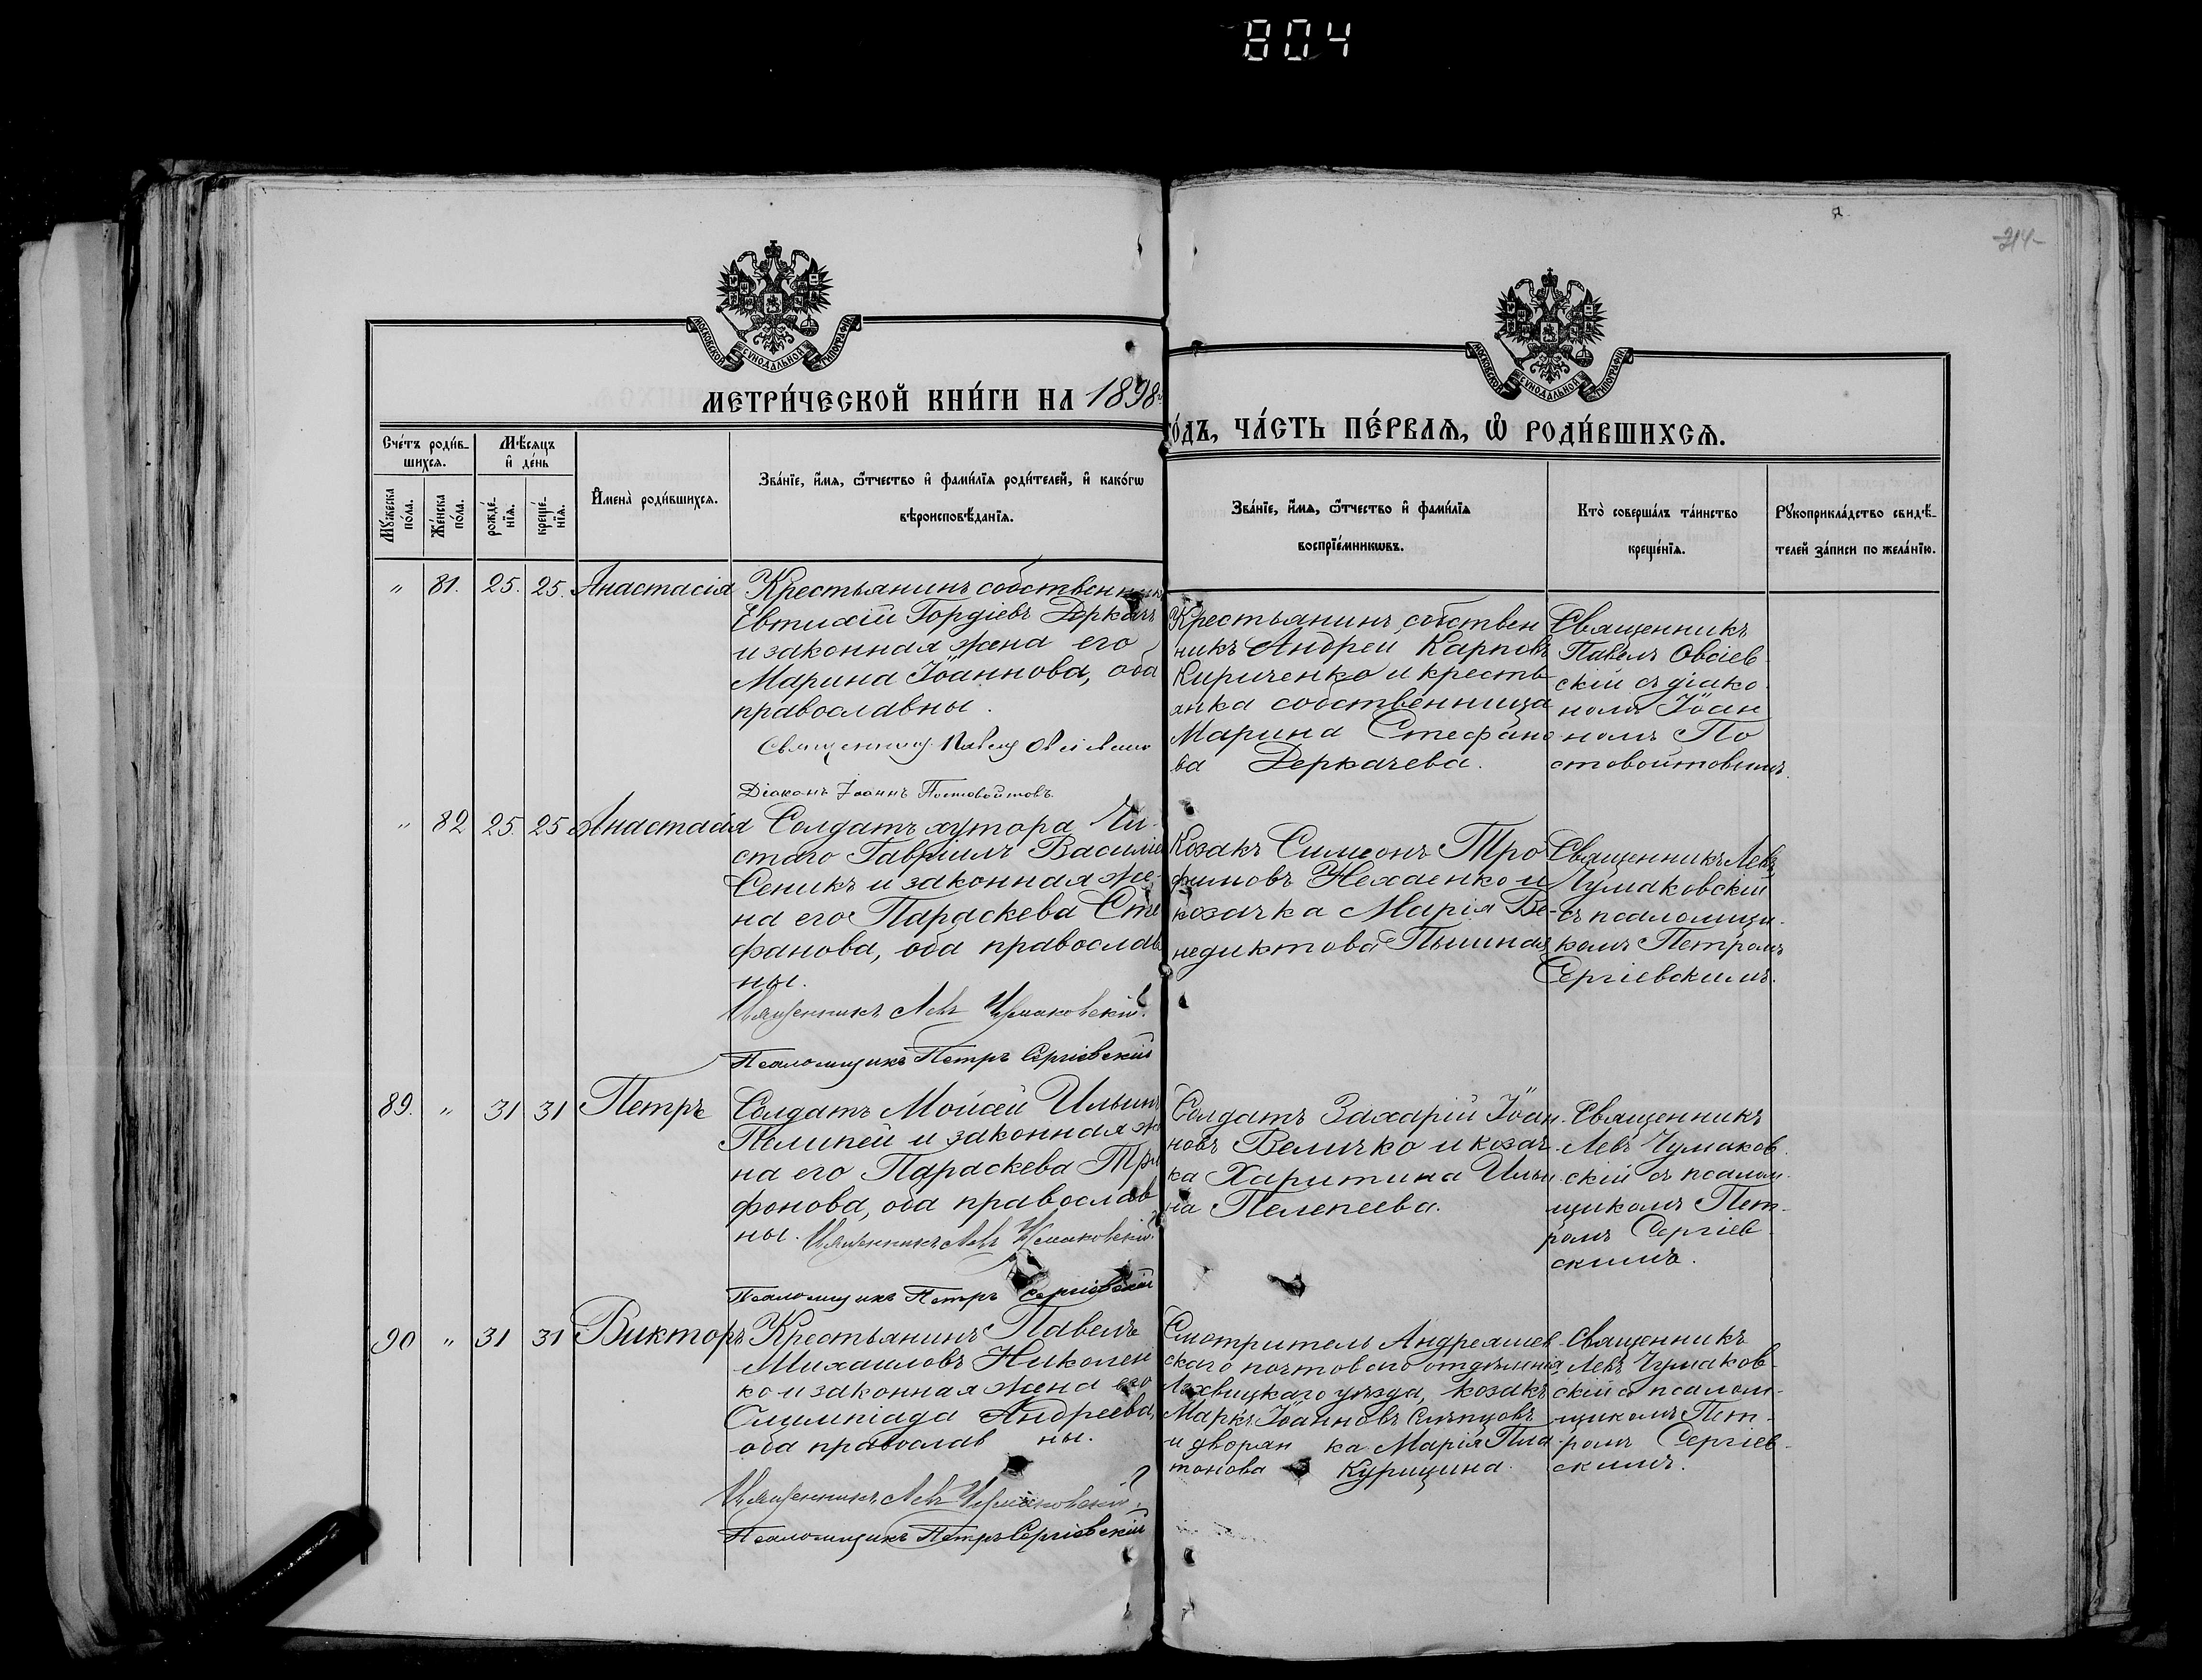 804
-214-
МОСКОВСКОЙ СѴНОДАЛЬНОЙ ТИПОГРАФІИ
МОСКОВСКОЙ СѴНОДАЛЬНОЙ ТИПОГРАФІИ
МЕТРИ́ЧЕСКОЙ КНИ́ГИ НА 1898
О́ДЪ, ЧА́СТЬ ПЕ́РВАЯ, Ѡ҆ РОДИ́ВШИХСЯ.
Сче́тъ роди́в-
шихся.
Мѣ́сяцъ
и҆ де́нь
Мꙋ́жеска
по́ла.
Же́нска
по́ла.
рожде́-
нїя.
креще́-
нїя.
И҆мена̀ роди́вшихся.
Зва́нїе, и҆́мя, ѻ҆́тчество и҆ фами́лїя роди́телей, и҆ како́гѡ
вѣроисповѣ́данїя.
Зва́нїе, и҆́мя, ѻ҆́тчество и҆ фами́лїя
воспрїе́мникѡвъ.
Кто̀ соверша́лъ та́инство
креще́нїя.
Рꙋкоприкла́дство свидѣ́-
телей за́писи по жела́нїю.
" 81. 25. 25. Анастасія
Крестьянинъ собственникъ
Евтихій Гордіевъ Деркачъ
и законная жена его
Марина Іоаннова, оба
православны.
Священникъ Павелъ
Діаконъ Іоаннъ Постовойтовъ
Крестьянинъ собствен
никъ Андрей Карповъ
Кириченко и кресть
янка собственница
Марина Стефано
ва Деркачева.
Священникъ
Павелъ Овсіев
скій съ діако
номъ Іоан
номъ По
стовойтовымъ.
" 82 25. 25 Анастасія
Солдатъ хутора Чи-
стаго Гавріилъ Василіе
Сеникъ и законная же-
на его Параскева Сте
фанова, оба православ
ны.
Священникъ Левъ Чумаковскій.
Псаломщикъ Петръ Сергіевскій
Козакъ Симеонъ Тро
фимовъ Нехаенко и
козачка Марія Ве-
недиктова Пышная
Священникъ Левъ
Чумаковскій
съ псаломщи-
комъ Петромъ
Сергіевскимъ.
89. " 31 31 Петръ
Солдатъ Мойсей Ильинъ
Пелипей и законная же
на его Параскева Три
фонова, оба православ
ны. Священникъ Левъ Чумаковскій.
Псаломщикъ Петръ Сергіевскій
Солдатъ Захарій Іоан
новъ Величко и козач
ка Харитина Ильи
на Пелепеева.
Священникъ
Левъ Чумаков
скій съ псалом-
щикомъ Пет-
ромъ Сергіев
скимъ.
90 " 31 31 Викторъ
Крестьянинъ Павелъ
Михаиловъ Николен
ко и законная жена его
Олимпіада Андреева,
оба православ ны.
Священникъ Левъ Чумаковскій.
Псаломщикъ Петръ Сергіевскій
Смотритель Андреяшев
скаго почтоваго отдѣленія
Лохвицкаго уѣзда, козакъ
Маркъ Іоанновъ Слѣпцовъ
и дворян ка Марія Пла
тонова Курицина.
Священникъ
Левъ Чумаков-
скій съ псалом-
щикомъ Пет-
ромъ Сергіев-
скимъ.